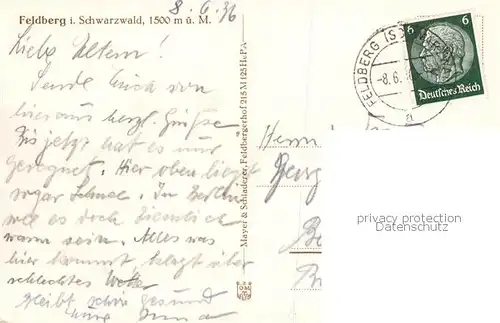 8.6.36
Feldberg i. Schwarzwald, 1500 m ü. M.
Liebe Eltern!
Sende Euch von
hier aus herzl. Grüße
Bis jetzt hat es nur
geregnet. Hier oben liegt
sogar Schnee. In Berlin
wie es doch ziemlich
warm sein. Alles was
hier kommt klagt über
schlechtes Wetter
bleibt schön gesund
Eure
Mayer & Schladerer, Feldbergerhof 215 M 125 HePA
FELDBERG (SCHWARZW
-8.6.
a
6 6
Deutsches Reich
Herrn
Georg
privacy protection
Datenschutz